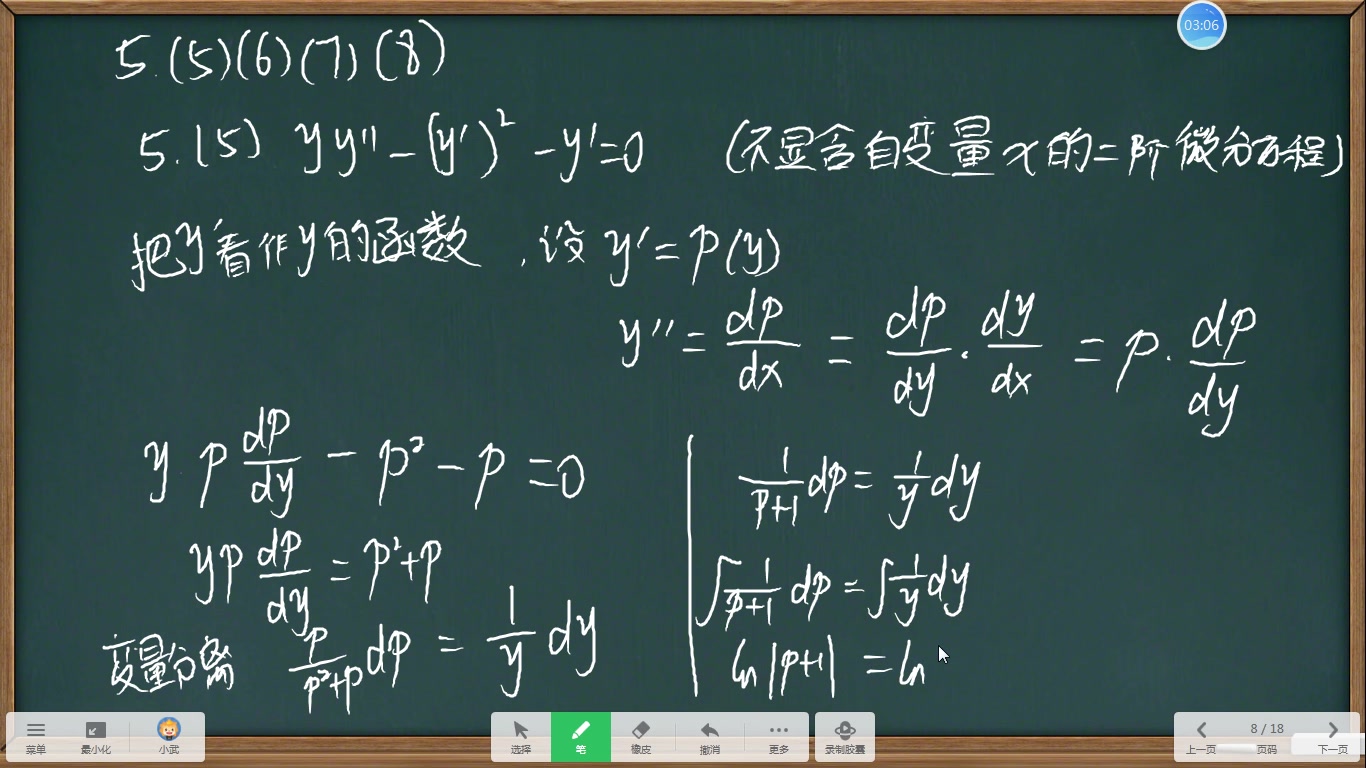 03:06
5.(5)(6)(7)(8)
5.(5) yy''-(y')²-y'=0 (不显含自变量x的二阶微分方程)
把y'看作y的函数,设 y'=p(y)
y''=dp/dx=dp/dy·dy/dx=p·dp/dy
y p dp/dy - p² - p = 0
yp dp/dy = p²+p
变量分离 p/(p²+p) dp = 1/y dy
1/(p+1) dp = 1/y dy
∫1/(p+1) dp = ∫1/y dy
ln|p+1| = ln
菜单 最小化 小武 选择 笔 橡皮 撤消 更多 录制胶囊 上一页 8 / 18 页码 下一页